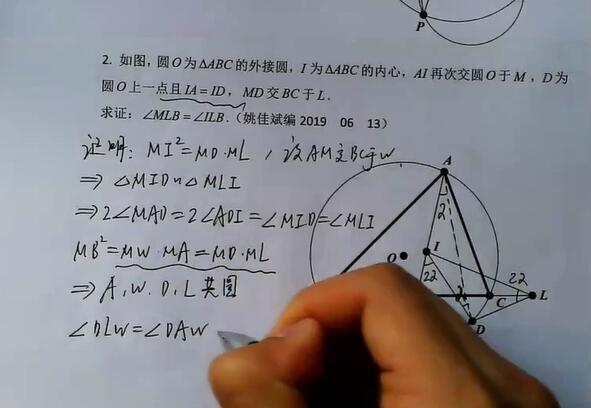 P
2. 如图，圆O为△ABC的外接圆，I为△ABC的内心，AI再次交圆O于M，D为
圆O上一点且IA=ID，MD交BC于L．
求证：∠MLB=∠ILB．（姚佳斌编 2019 06 13）
证明：MI²=MD·ML，设AM交BC于W
⇒ △MID∽△MLI
⇒ 2∠MAD=2∠ADI=∠MID=∠MLI
MB²=MW·MA=MD·ML
⇒ A,W.D,L共圆
∠DLW=∠DAW
A
2
I
O
22
22
C
L
D